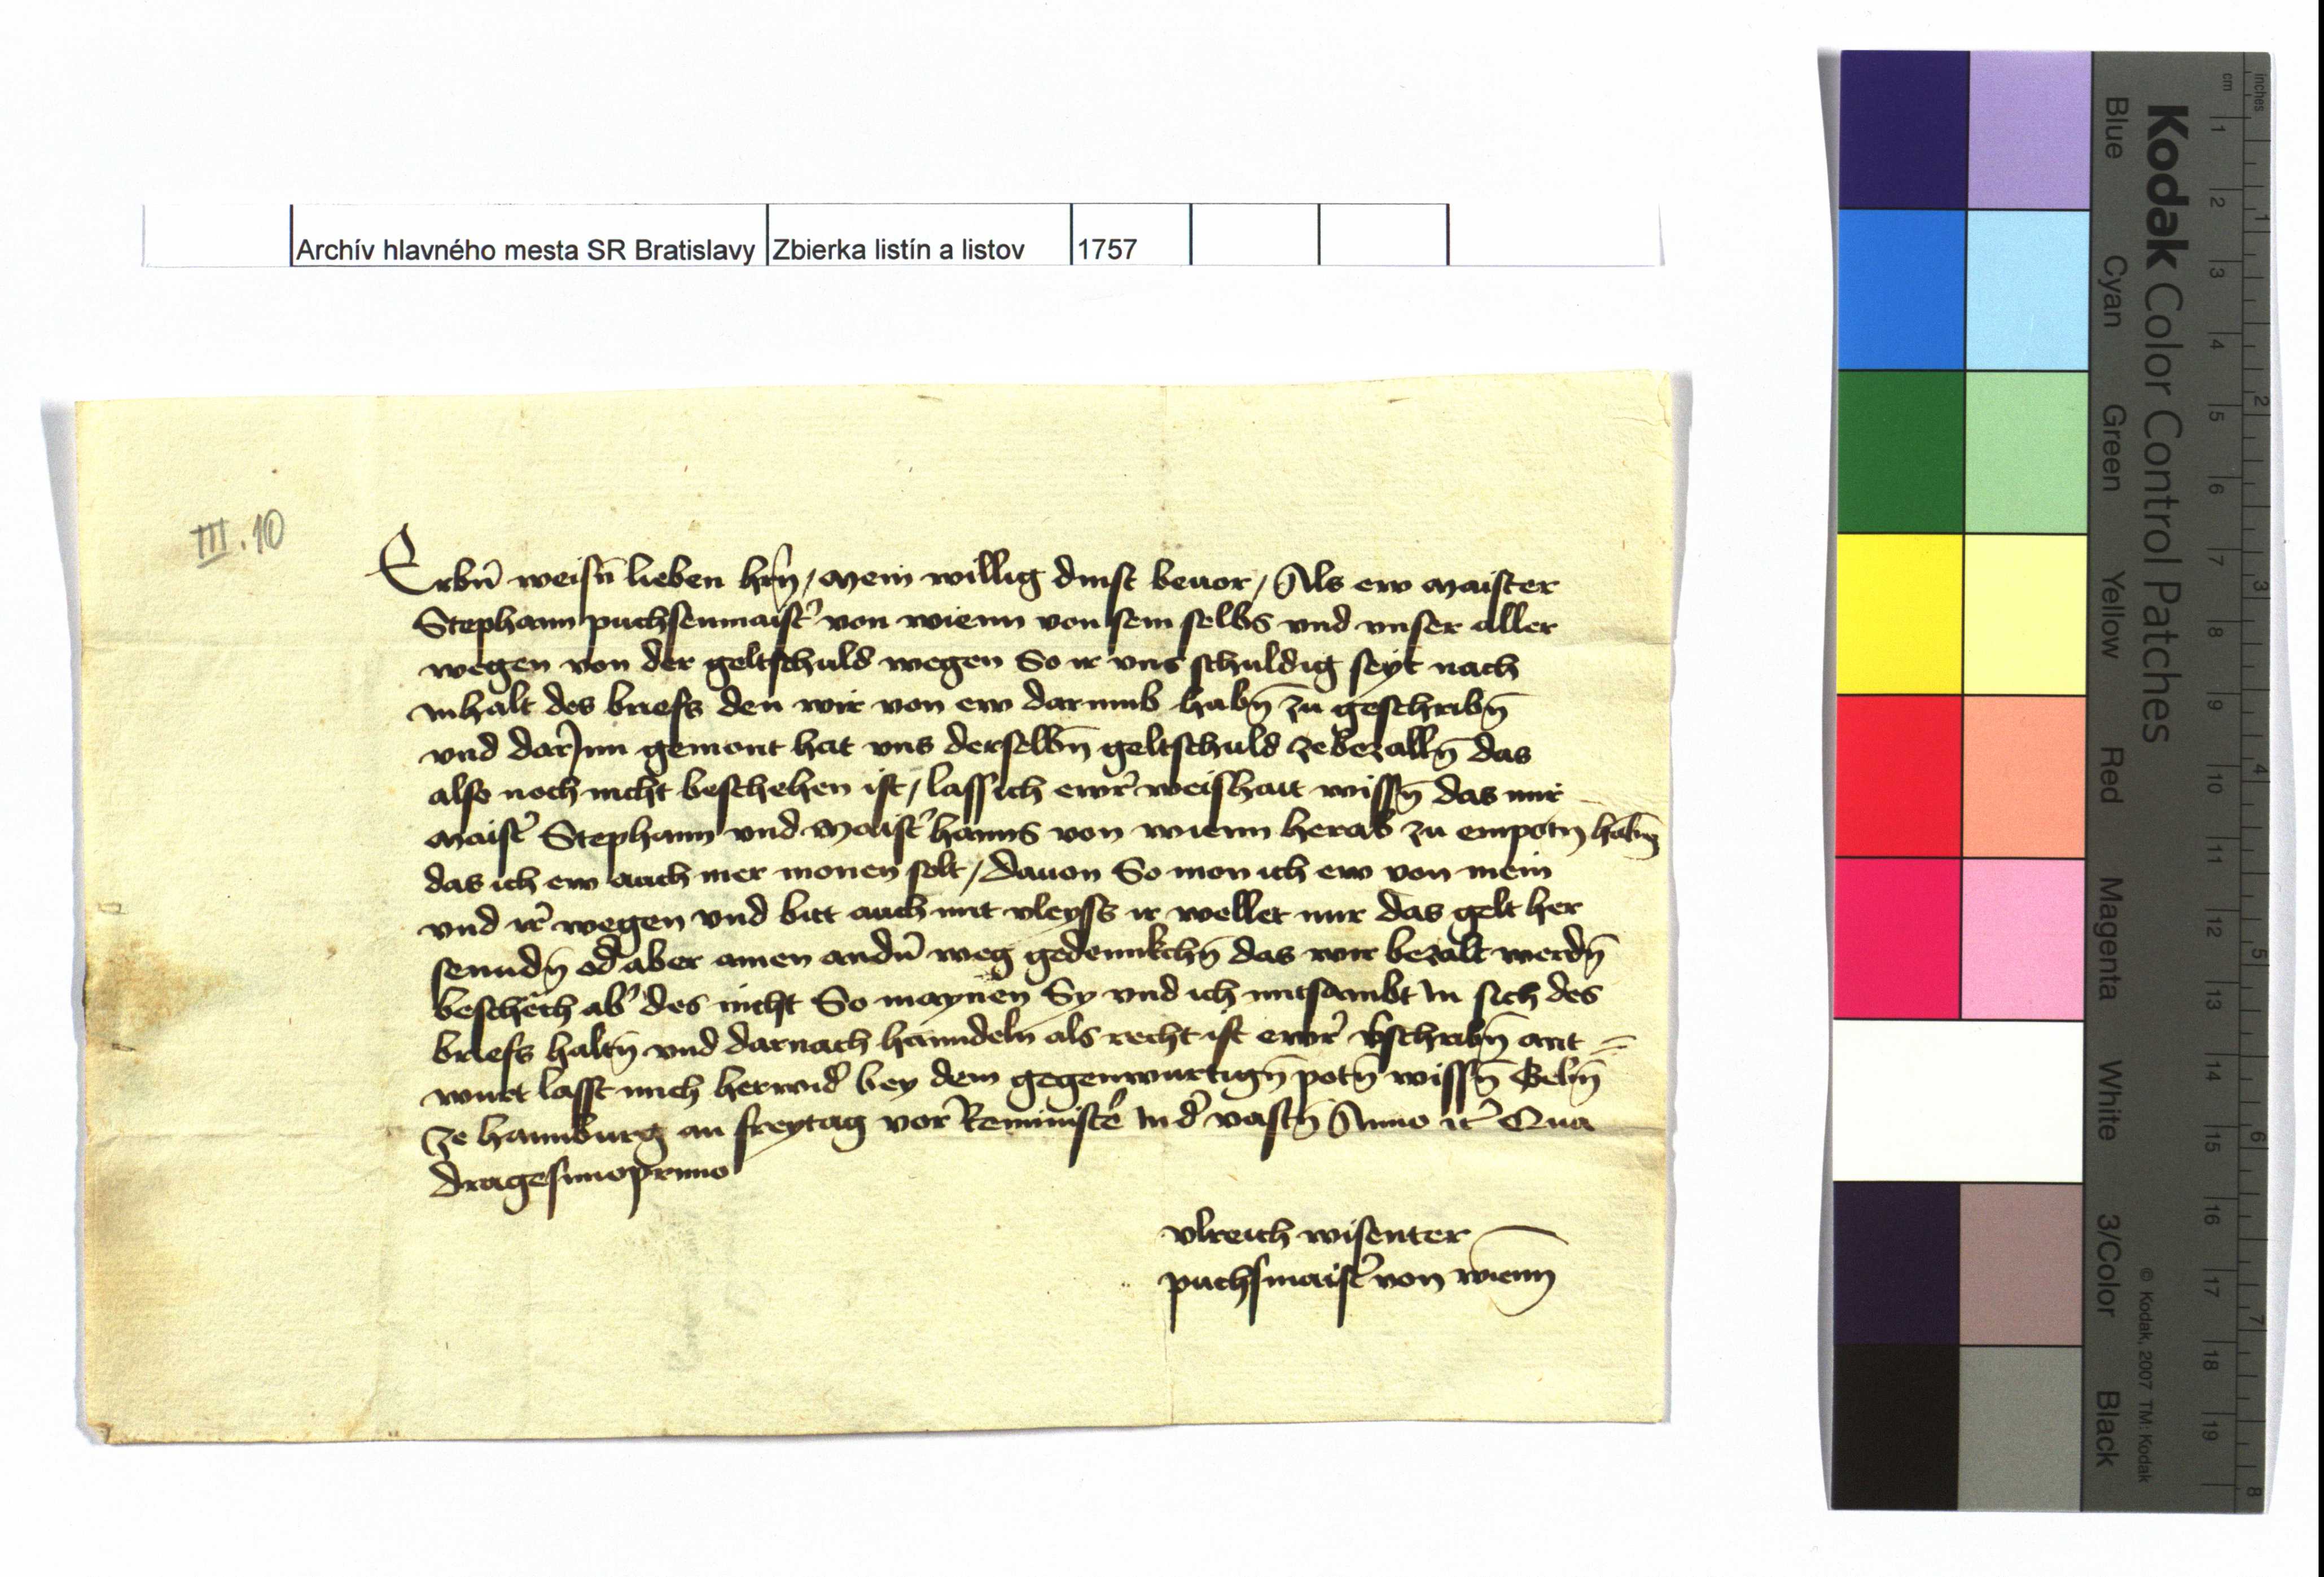 Archív hlavného mesta SR Bratislavy Zbierka listín a listov 1757
III. 10
Erbn̄ weisn̄ lieben hrn̄ / mein willig dinst beuor / Als ew maister
Stephann puchsenmaist̛ von wienn von sein selbs vnd vnser aller
wegen von der geltschuld wegen So ir vns schuldig seyt nach
Inhalt des briefs den wir von ew darumb habn̄ zu geschribn̄
vnd darJnn gemont hat vns derselbn̄ geltschuld zebezalln̄ das
also noch nicht beschehen ist / lass ich ewr̛ weishait wissn̄ das mir
maist̛ Stephann vnd Maist̛ hanns von wienn herab zu empotn̄ habn̄
das ich ew auch mer monen solt / dauon So mon ich ew von mein
vnd ir̛ wegen vnd bitt auch mit vleyss ir wellet mir das gelt her
senndn̄ od̛ aber ainen andn̄ weg gedennkchn̄ das wir bezalt werdn̄
beschech ab̛ des nicht So maynen Sy vnd ich mitsambt In sich des
briefs haltn̄ vnd darnach hanndeln als recht ist ewr̛ v̛schribn̄ ant=
wurt lasst mich herwid̛ bey dem gegenwurtign̄ potn̄ wissn̄ Gebn̄
ze haimburg an freytag vor Reminiscē̛ In d̛ vastn̄ Anno ꝛc̛ Qua
dragesimoprimo
vlreich wisenter
puchsmaist̛ von wienn
Kodak Color Control Patches
Blue Cyan Green Yellow Red Magenta White 3/Color Black
© Kodak, 2007 TM: Kodak
inches 1 2 3 4 5 6 7 8
cm 1 2 3 4 5 6 7 8 9 10 11 12 13 14 15 16 17 18 19